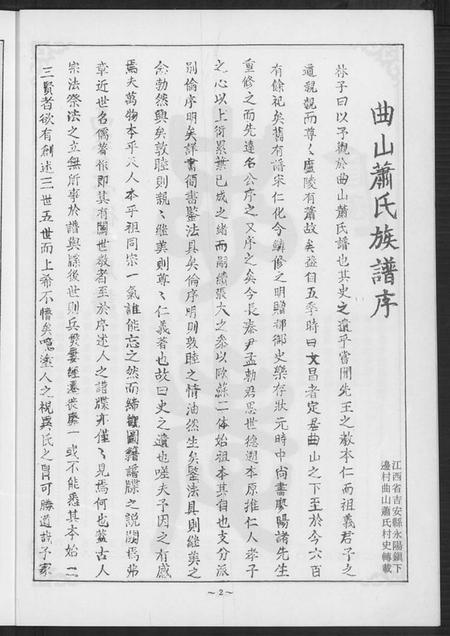 曲山蕭氏族譜序
江西省吉安縣永陽鎮下
邊村曲山蕭氏村史轉載
林子曰以予觀於曲山蕭氏譜也其史之遺乎嘗聞先王之教本仁而祖義君子之
道親親而尊〻廬陵有蕭故矣益自五季時曰文昌者定居曲山之下至於今六百
有餘祀矣舊有譜宋仁化令續修之明贈都御史樂存狀元時中尚書廖陽諸先生
重修之而先達名公序之又序之矣今長泰尹孟勅君思世德邇本原推仁人孝子
之心以上術累葉已成之緒而嗣續張大之參以歐蘇二体始祖本其自也支分派
別倫序明矣詳書簡書鑒法具矣倫序明則敦睦之情油然生矣鑒法具則繼美之
念勃然興矣敦睦則親〻繼美則尊〻仁義著也故曰史之遺也嗟夫予因之有感
焉夫萬物本乎天人本乎祖同宗一氣誰能忘之然而締觀圖籍譜牒之說闕焉弗
章近世名儒著作即其有關世教者至於序述人之譜牒亦僅〻見焉何也蓋古人
宗法祭法之立無所事於譜與議後世則兵燹婁經墓喪廢一或不能悉其本始一二
三賢者欲有創述三世五世而上希不懵矣噫塗人之視吳氏之胄可勝道哉予家
~2~